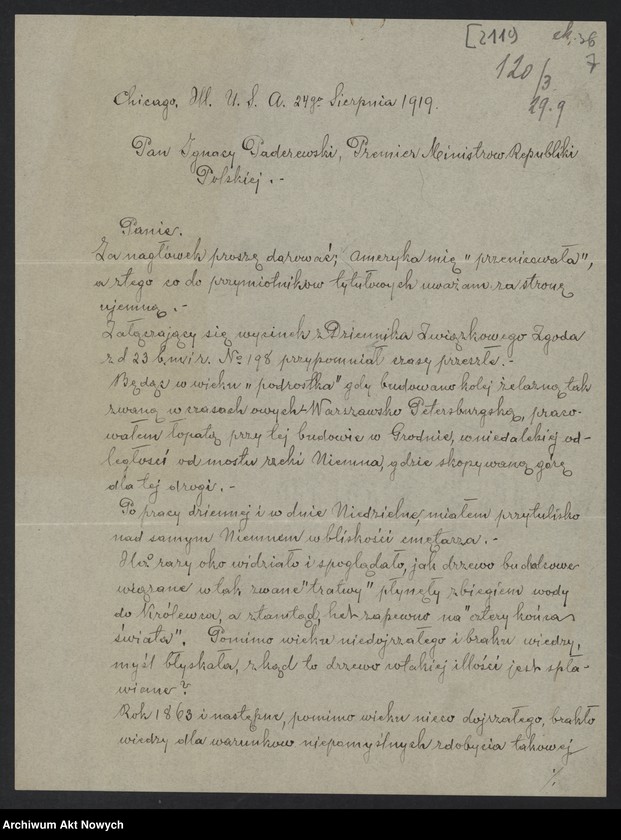 [2119]
120/3
29.9
Chicago, Ill. U. S. A. 24go Sierpnia 1919.
Pan Ignacy Paderewski, Premier Ministrow Republiki
Polskiej.-
Panie.
Za nagłówek proszę darować; Ameryka mię "przenicowała",
a ztego co do przymiotników tytułowych uważam za stronę
ujemną.-
Załączający się wycinek z Dziennika Związkowego Zgoda
z d 23 b. m. i r. No 198 przypomniał czasy przeszłe.-
Będąc w wieku "podrostka" gdy budowano kolej żelazną tak
zwaną w czasach owych-Warszawsko Petersburgską, praco-
wałem łopatą przy tej budowie w Grodnie, w niedalekiej od-
ległości od mostu rzeki Niemna, gdzie skopywaną górę
dla tej drogi.-
Po pracy dziennej i w dnie Niedzielne, miałem przytulisko
nad samym Niemnem w bliskości cmętarza.-
razy oko widziało i spoglądało, jak drzewo budulcowe
wiązane w tak zwane "tratwy" płynęły z biegiem wody
do Królewca, a ztamtąd, het zapewno na "cztery końca
świata". Pomimo wieku niedojrzałego i braku wiedzy,
myśl błyskała, zkąd to drzewo w takiej illości jest spła-
wiane?
Rok 1863 i następne, pomimo wieku nieco dojrzałego, brakło
wiedzy dla warunków niepomyślnych zdobycia takowej
./.
Archiwum Akt Nowych